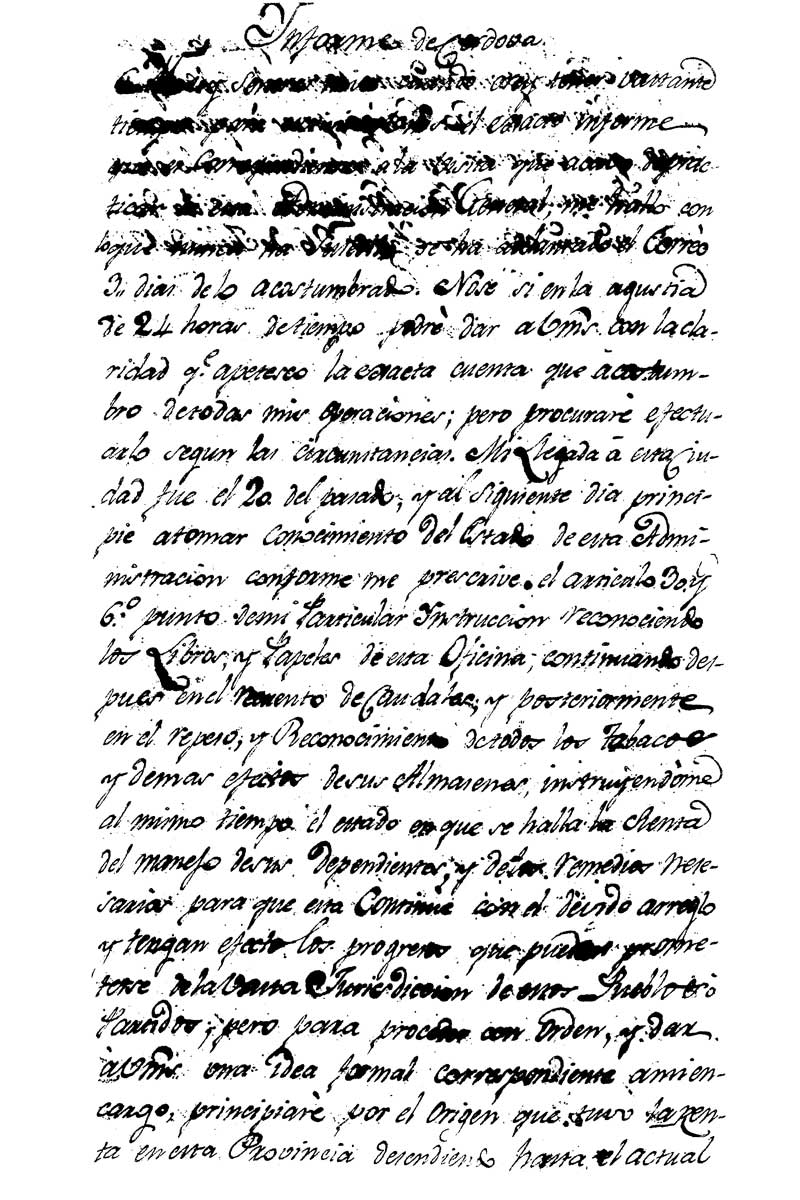 Ynforme de Cordova.
Señores mios cuando crey tener vastante
tiempo para el exacto informe
correspondiente a la visita que acavo de prac-
ticar de esta Administracion General, me hallo con
lo que nunca ha se ha adelantado el Correo
3,, dias de lo acostumbrado. Nose si en la agustia
de 24 horas de tiempo podrè dar a Vms. con la cla-
ridad q.e apeteseo la exacta cuenta que àcostum-
bro de todas mis operaciones; pero procurarè efectu-
arlo segun las circunstancias. Mi Llegada â esta Ciu-
dad fue el 20 del pasado, y al siguiente dia princi-
pie atomar Conocimiento del Estado de esta Admi-
nistracion conforme me prescrive el articulo 30. y
6.º punto demi Particular Ynstruccion reconociendo
los Libros, y Papeles de esta Oficina, continuando des-
pues en el recuento de Caudales, y posteriormente
en el repeso, y Reconocimiento de todos los Tabacos
y demas efectos desus Almasenes, instruyendòme
al mismo tiempo el estado en que se halla la Renta
del manejo desus Dependientes, y delos remedios nese-
sarios para que esta Continùe con el devido arreglo
y tengan efecto los progresos que pueden prome-
terse de la Vasta Jurisdiccion de estos Pueblos ò
Partidos; pero para proceder con orden, y dar
à Vms. una idea formal correspondiente amien-
cargo, principiarè por el Origen que tuvo la Ren-
ta en esta Provincia desendiendo hasta el actual